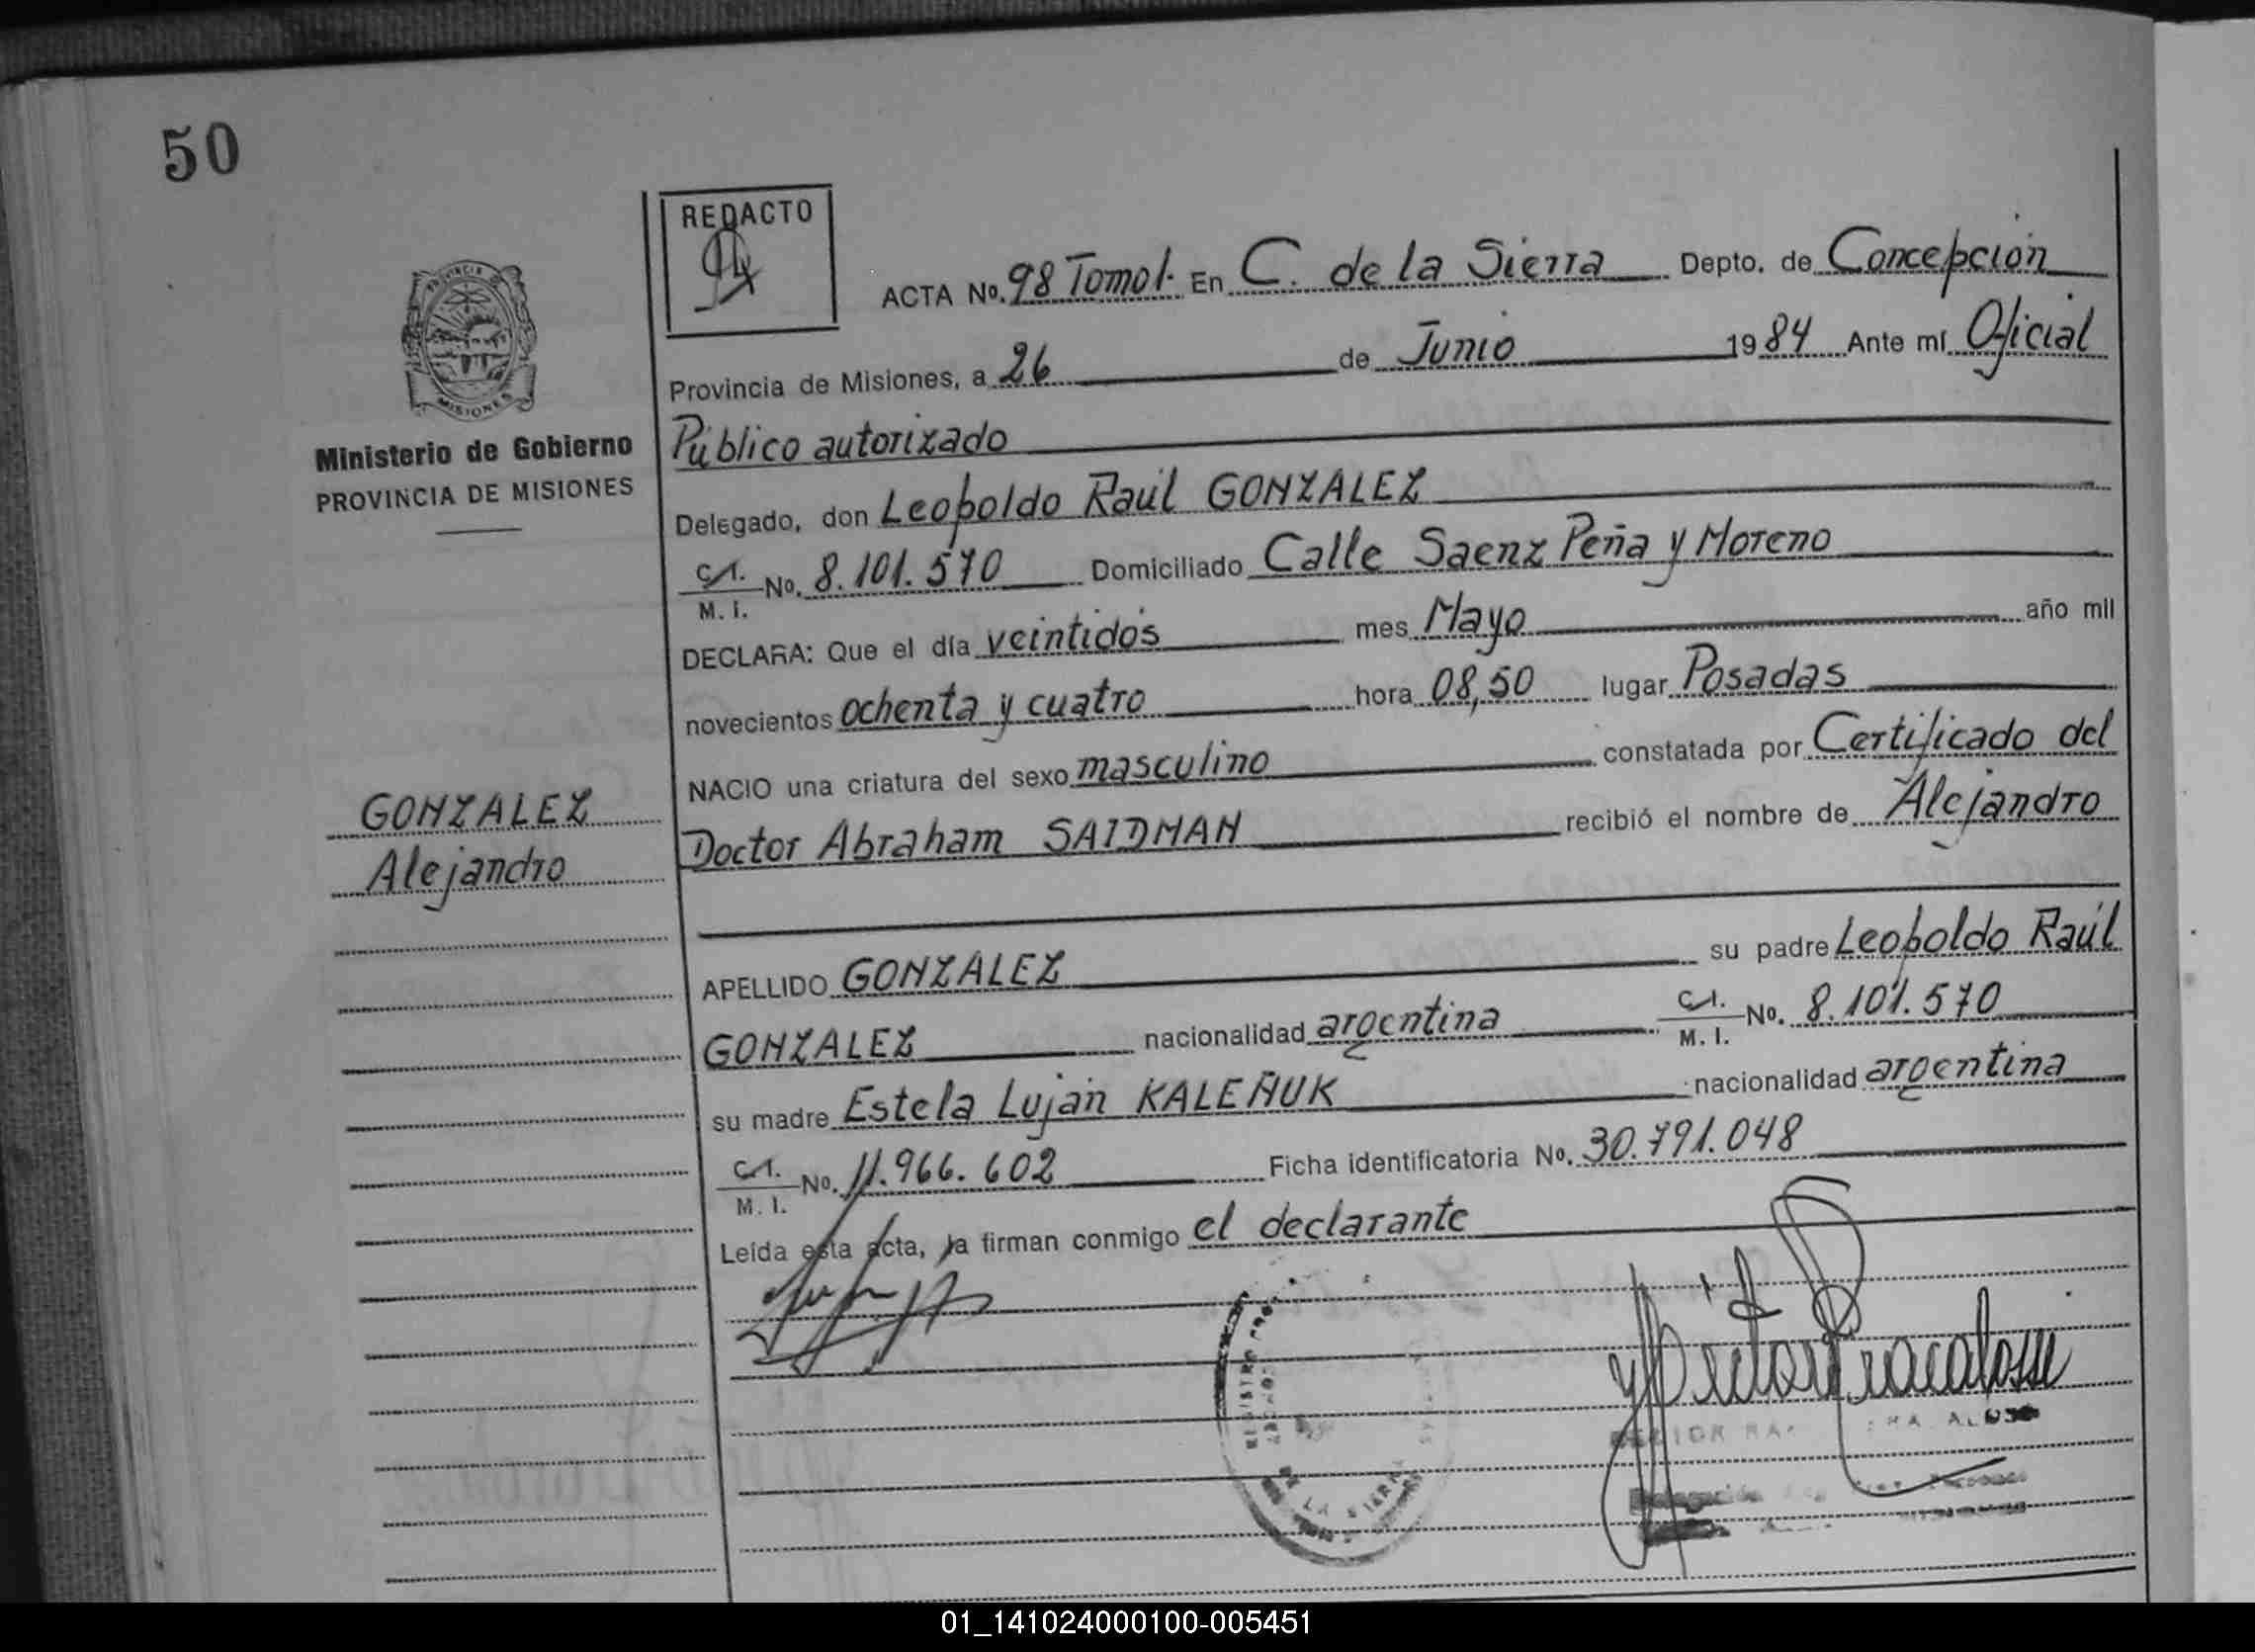 50
REDACTO
ACTA No. 98 Tomo I. En C. de la Sierra Depto. de Concepción
Provincia de Misiones, a 26 de Junio 1984 Ante mí Oficial
Público autorizado
Ministerio de Gobierno
PROVINCIA DE MISIONES
MISIONES
Delegado, don Leopoldo Raúl GONZALEZ
C.I. No. 8.101.570 Domiciliado Calle Saenz Peña y Moreno
M. I.
DECLARA: Que el día veintidós mes Mayo año mil
novecientos ochenta y cuatro hora 08,50 lugar Posadas
NACIO una criatura del sexo masculino constatada por Certificado del
Doctor Abraham SAIDMAN recibió el nombre de Alejandro
GONZALEZ
Alejandro
APELLIDO GONZALEZ su padre Leopoldo Raúl
GONZALEZ nacionalidad argentina C.I. No. 8.101.570
M. I.
su madre Estela Luján KALEÑUK nacionalidad argentina
C.I. No. 11.966.602 Ficha identificatoria No. 30.791.048
M. I.
Leída esta acta, la firman conmigo el declarante
LA SIERRA
01_141024000100-005451